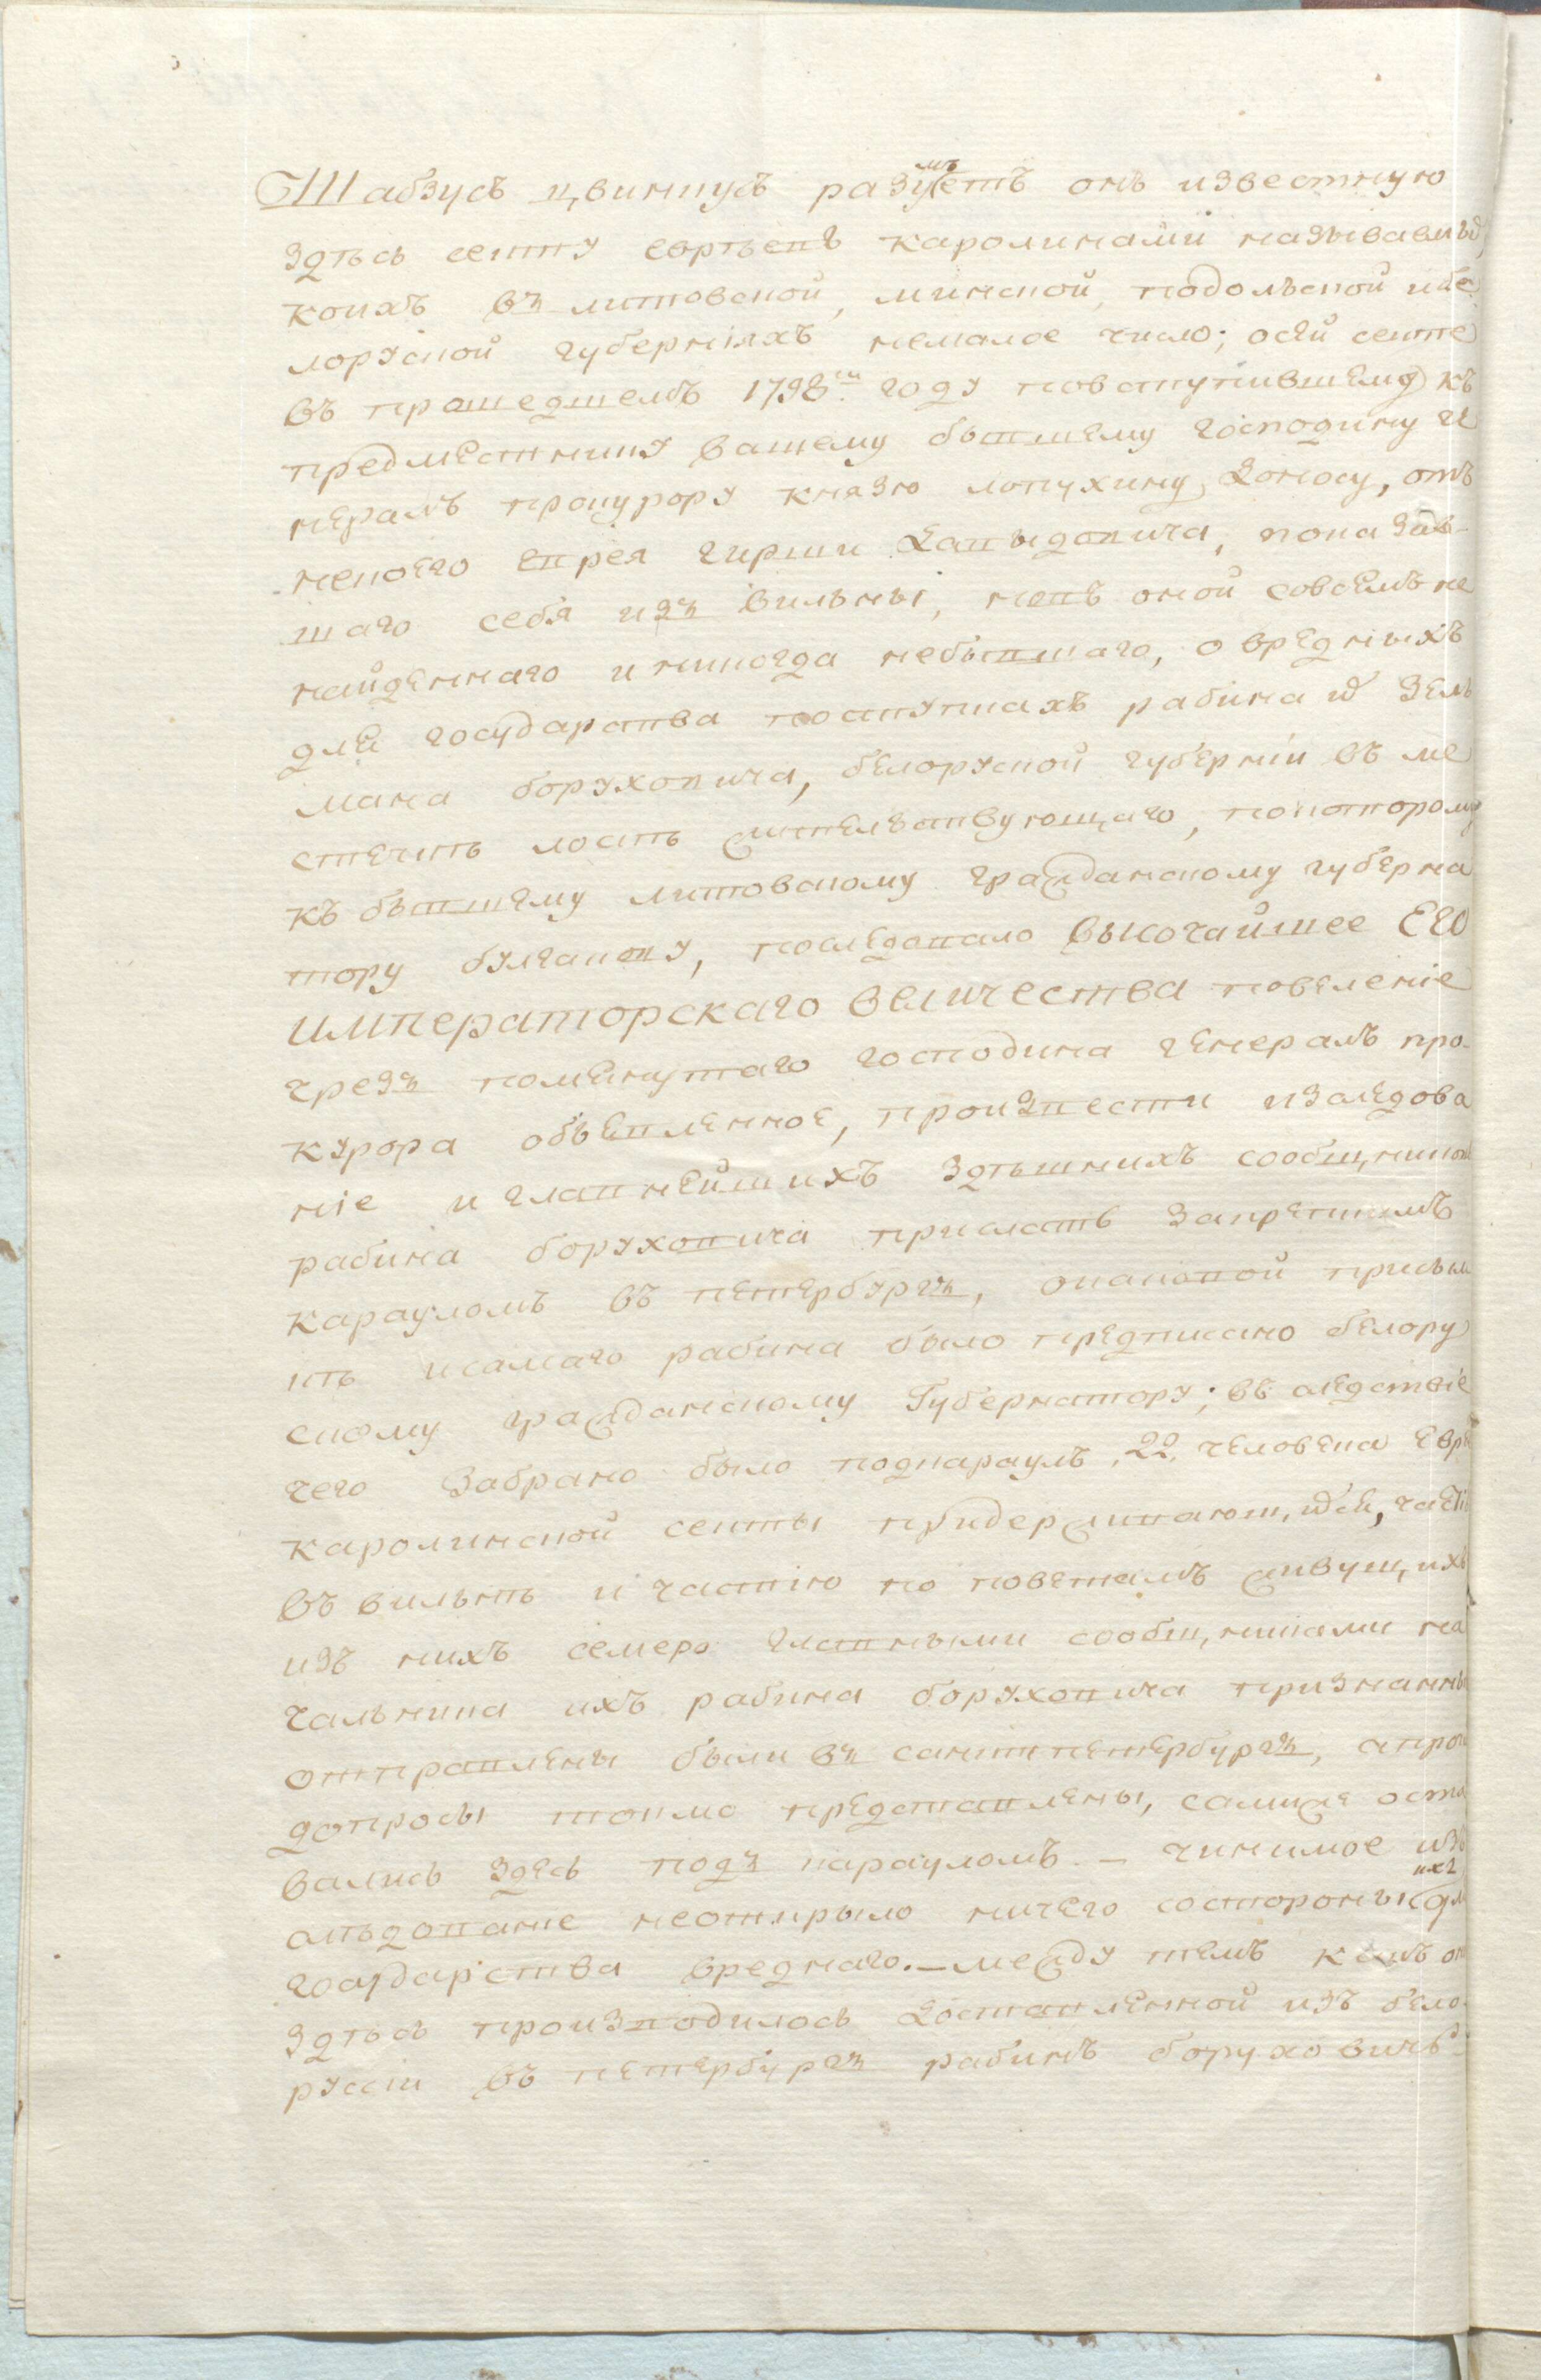 Шабзусъ цвинтусъ разумѣетъ онъ известную
здѣсь секту евреевъ каролинами называемыхъ,
коихъ въ литовской, минской, подольской и бе
лоруской губерніяхъ немалое число; о сей секте
въ прошедшемъ 1798м. году по вступившему къ
предместнику вашему бывшему господину ге
нералъ прокурору князю лопухину доносу, отъ
некоего еврея гирши давыдовича, показав-
шаго себя изъ вильны, но въ оной совсемъ не
найденнаго и никогда небывшаго, о вредныхъ
для государства поступкахъ рабина Зель
мана боруховича, белоруской губерніи въ ме
стечкѣ жительствующаго, по которому
къ бывшему литовскому гражданскому губерна
тору булгакову, последовало высочайшее Его
императорскаго величества повеленіе
чрезъ помянутаго господина генералъ про-
курора объевленное, произвести изследова
ніе и главнейшихъ здѣшнихъ сообщников
рабина боруховича прислать за крепкимъ
карауломъ въ петербургъ, о каковой присыл
кѣ и самаго рабина было предписано белору
скому гражданскому Губернатору; въ следствіе
чего забрано было подкараулъ 22 человека евре
каролинской секты придерживающихся, частію
въ вильнѣ и частію по поветамъ живущихъ
изъ нихъ семеро главными сообщниками на
чальника ихъ рабина боруховича признанны
отправлены были въ санктпетербургъ, а проч
допросы токмо представлены, самиже оста
вались здесь подъ карауломъ. – чинимое из
слѣдование неоткрыло ничего со стороны ихъ дл
государства вреднаго. – между темъ какъ он
здѣсь производилось доставленной изъ бело-
руссіи въ петербургъ рабинъ боруховичъ